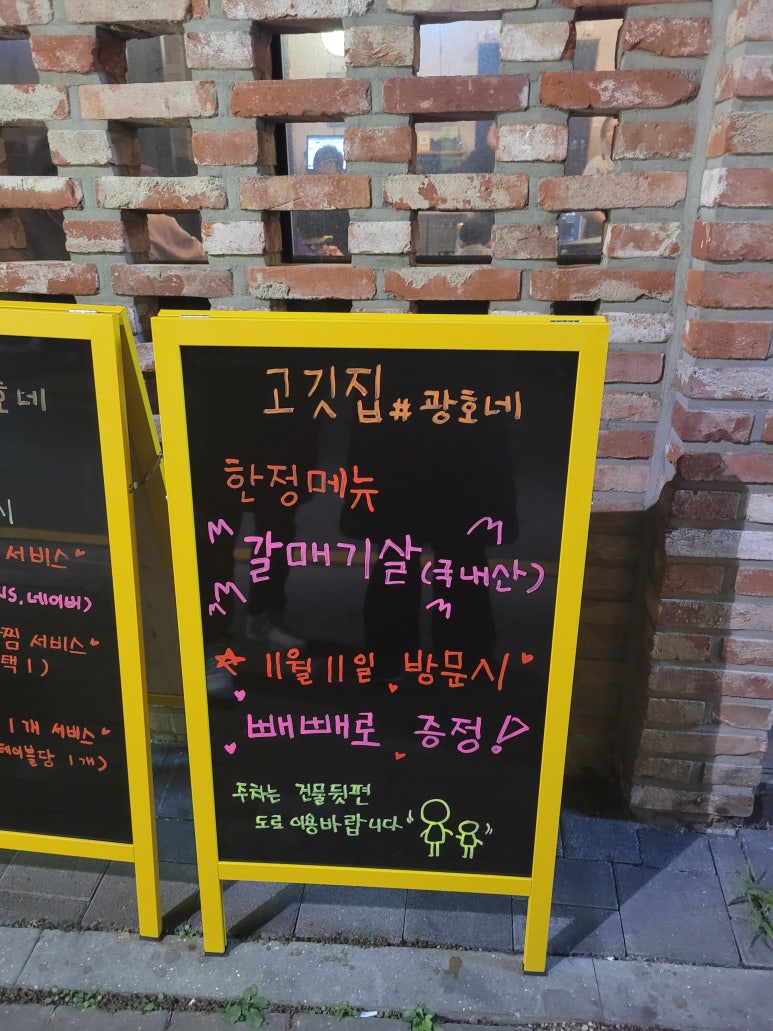 호네
시
서비스
NS, 네이버)
찜 서비스
택 1)
1개 서비스
테이블당 1개)
고깃집 #광호네
한정메뉴
갈매기살 (국내산)
11월 11일 방문시
빼빼로 증정!
주차는 건물뒷편
도로 이용바랍니다